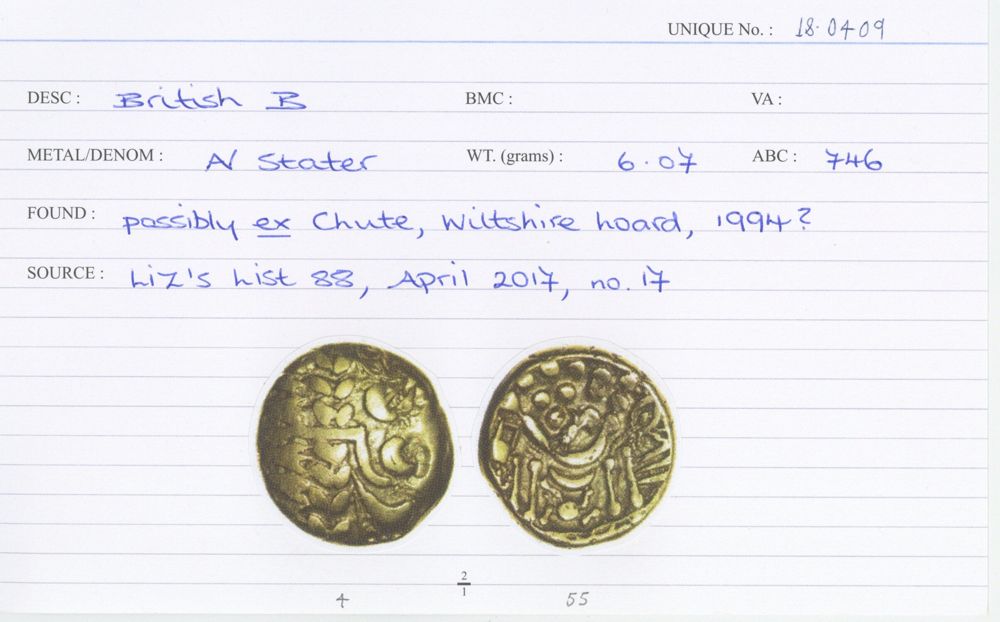 UNIQUE No. : 18.0409
DESC : British B BMC : VA :
METAL/DENOM : AV Stater WT. (grams) : 6.07 ABC : 746
FOUND : possibly ex Chute, Wiltshire hoard, 1994?
SOURCE : Liz's List 88, April 2017, no. 17
2
1
4 55